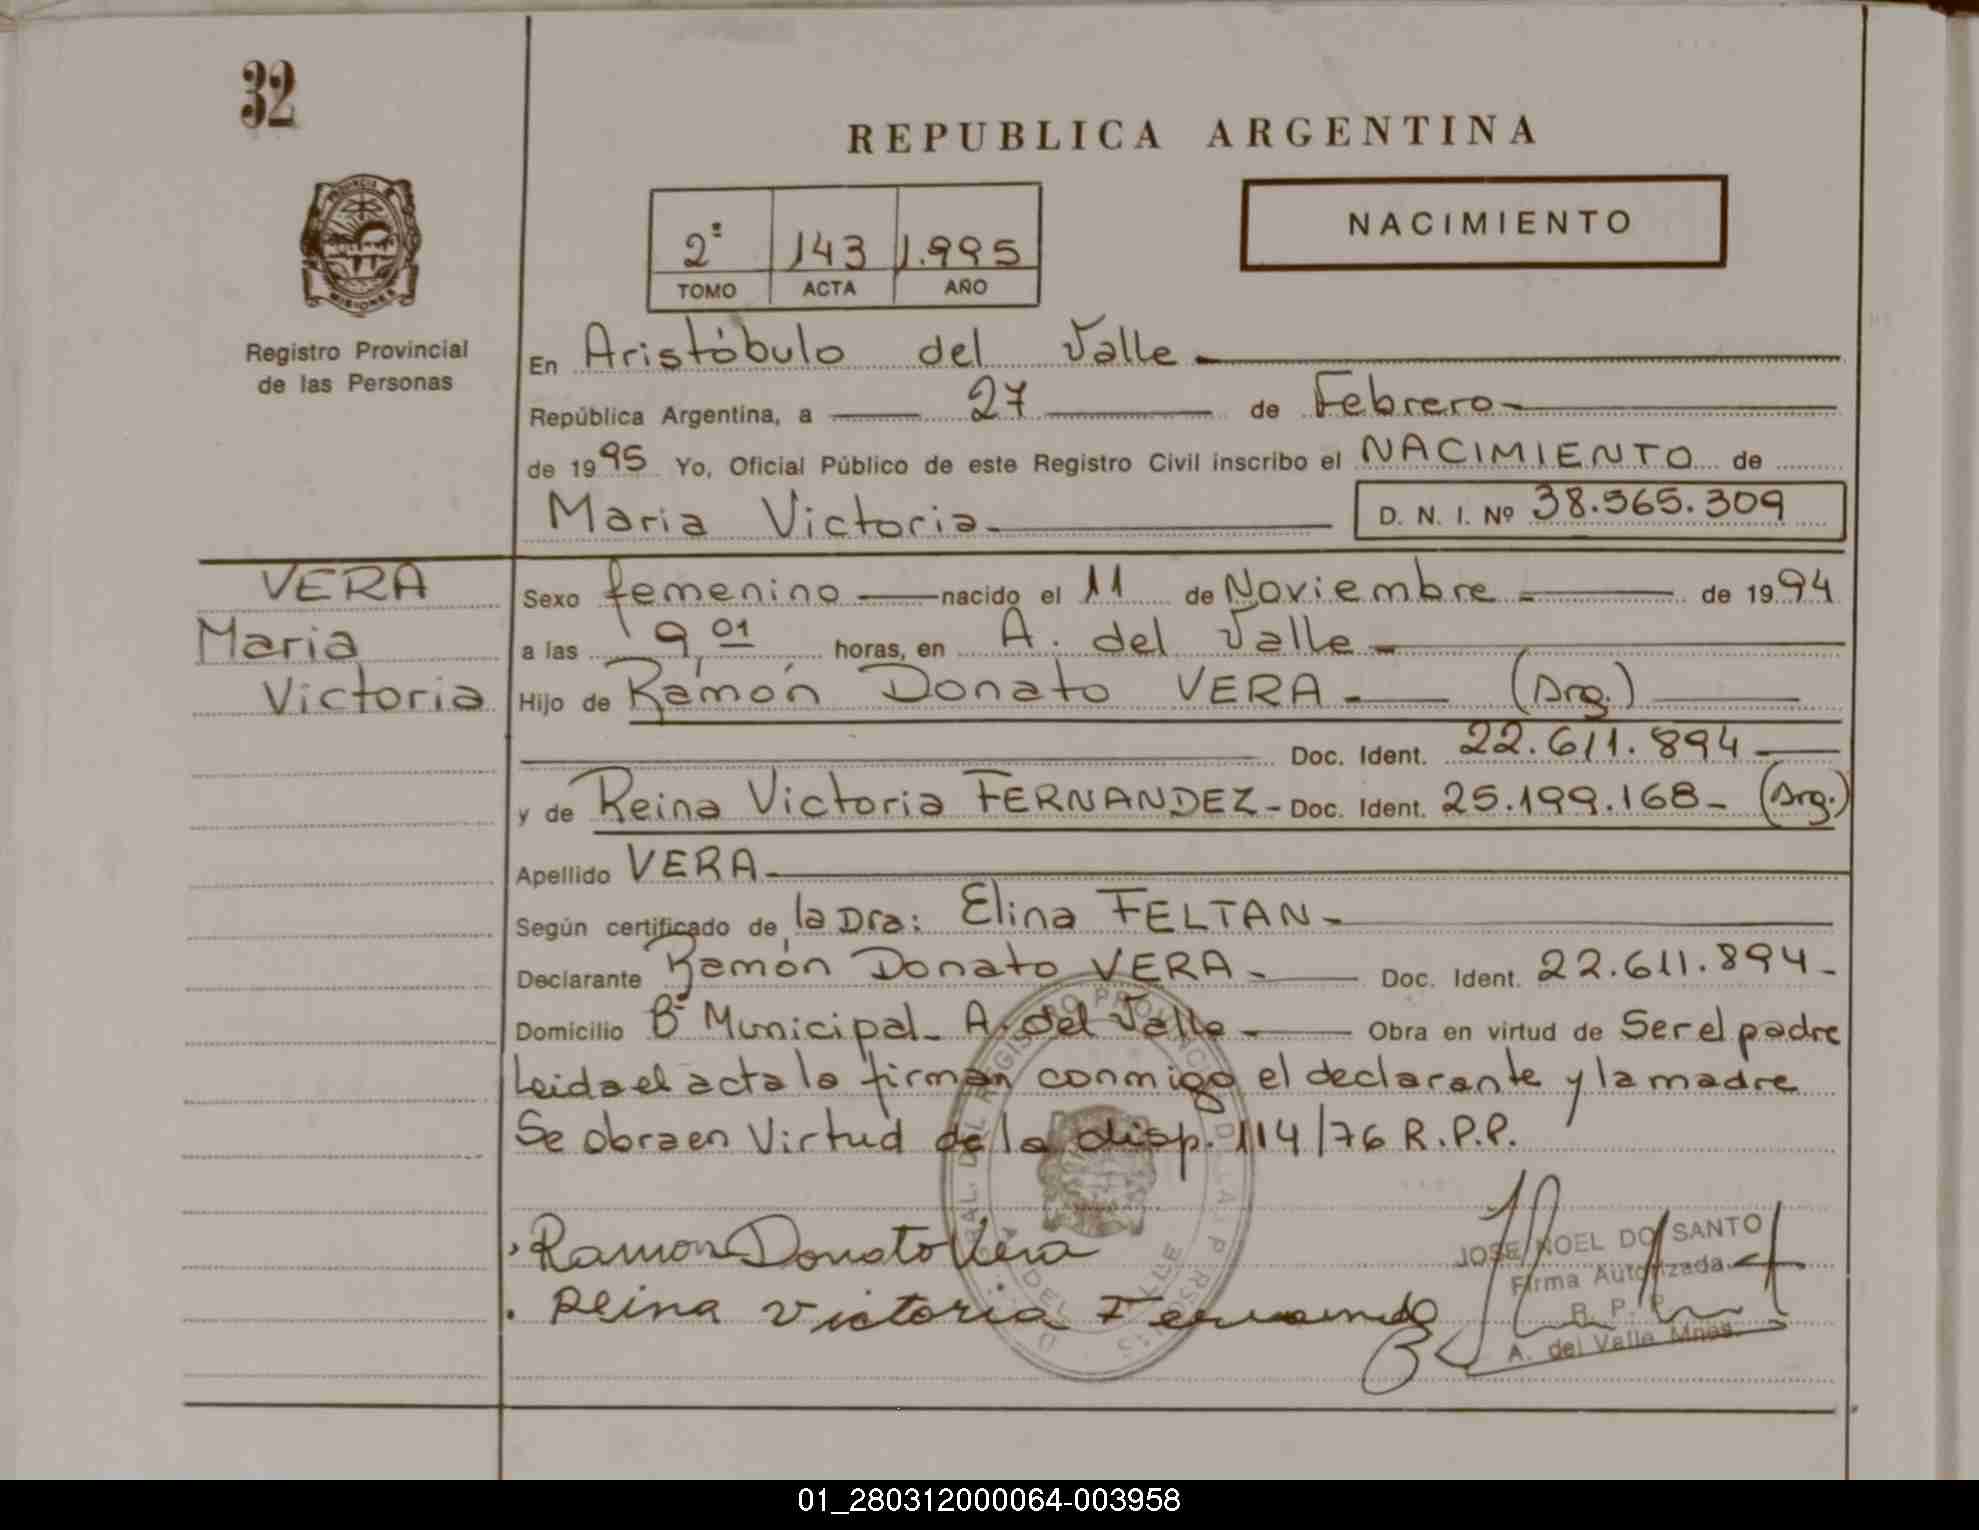 32
REPUBLICA ARGENTINA
NACIMIENTO
2º 143 1.995
TOMO ACTA AÑO
PROVINCIA DE MISIONES
Registro Provincial
de las Personas
En Aristóbulo del Valle
República Argentina, a 27 de Febrero
de 1995 Yo, Oficial Público de este Registro Civil inscribo el NACIMIENTO de
Maria Victoria D. N. I. Nº 38.565.309
VERA
Maria
Victoria
Sexo femenino nacido el 11 de Noviembre de 1994
a las 9,01 horas, en A. del Valle
Hijo de Ramón Donato VERA (Arg.)
Doc. Ident. 22.611.894
y de Reina Victoria FERNANDEZ Doc. Ident. 25.199.168 (Arg.)
Apellido VERA
Según certificado de la Dra: Elina FELTAN
Declarante Ramón Donato VERA Doc. Ident. 22.611.894
Domicilio Bº Municipal A. del Valle Obra en virtud de Ser el padre
Leida el acta la firman conmigo el declarante y la madre
Se obra en Virtud de la disp. 114/76 R.P.P.
Ramon Donato Vera
Reina Victoria Fernandez
JOSE NOEL DO SANTO
Firma Autorizada
R. P. P.
A. del Valle Mnes.
01_280312000064-003958